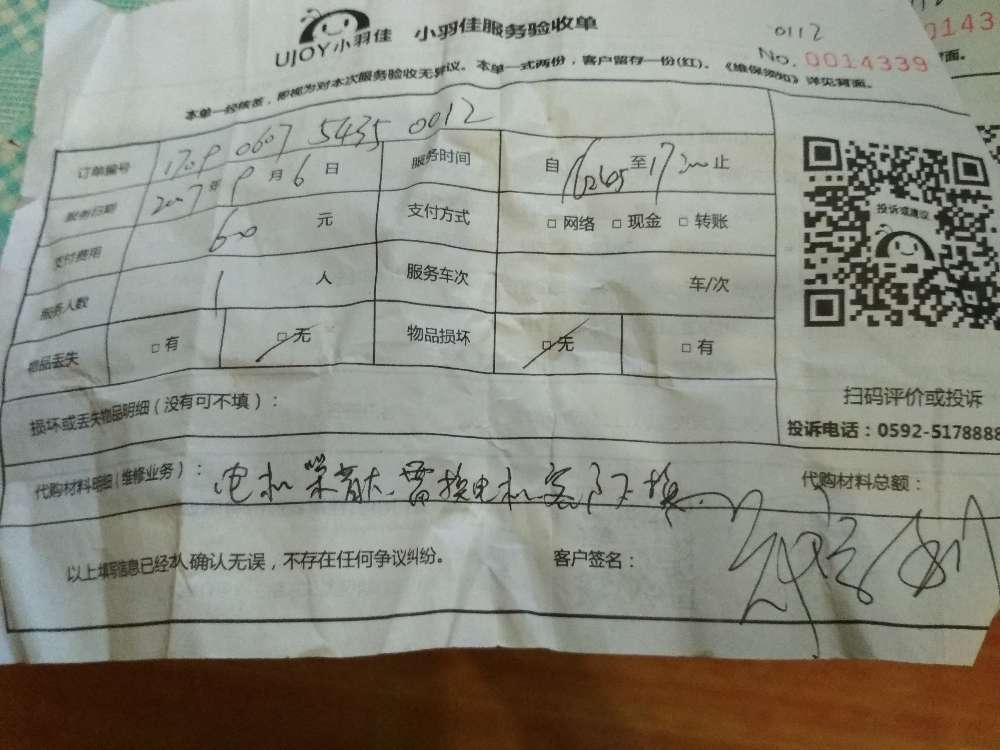 UJOY小羽佳 小羽佳服务验收单
0112
No. 0014339
本单一经核签，即视为对本次服务验收无异议。本单一式两份，客户留存一份(红)。《维保须知》详见背面。
订单编号 1709 0607 5435 0012 服务时间 自 至17:00止
服务日期 2017年9月6日 支付方式 □ 网络 □ 现金 □ 转账
支付费用 60元
服务人数 1人 服务车次 车/次
物品丢失 □ 有 □ 无 物品损坏 □ 无 □ 有
投诉或建议
扫码评价或投诉
投诉电话：0592-5178888
损坏或丢失物品明细（没有可不填）：
代购材料明细（维修业务）： 电机 需换电机 客户不换 代购材料总额：
以上填写信息已经本人确认无误，不存在任何争议纠纷。 客户签名：
0143
面。